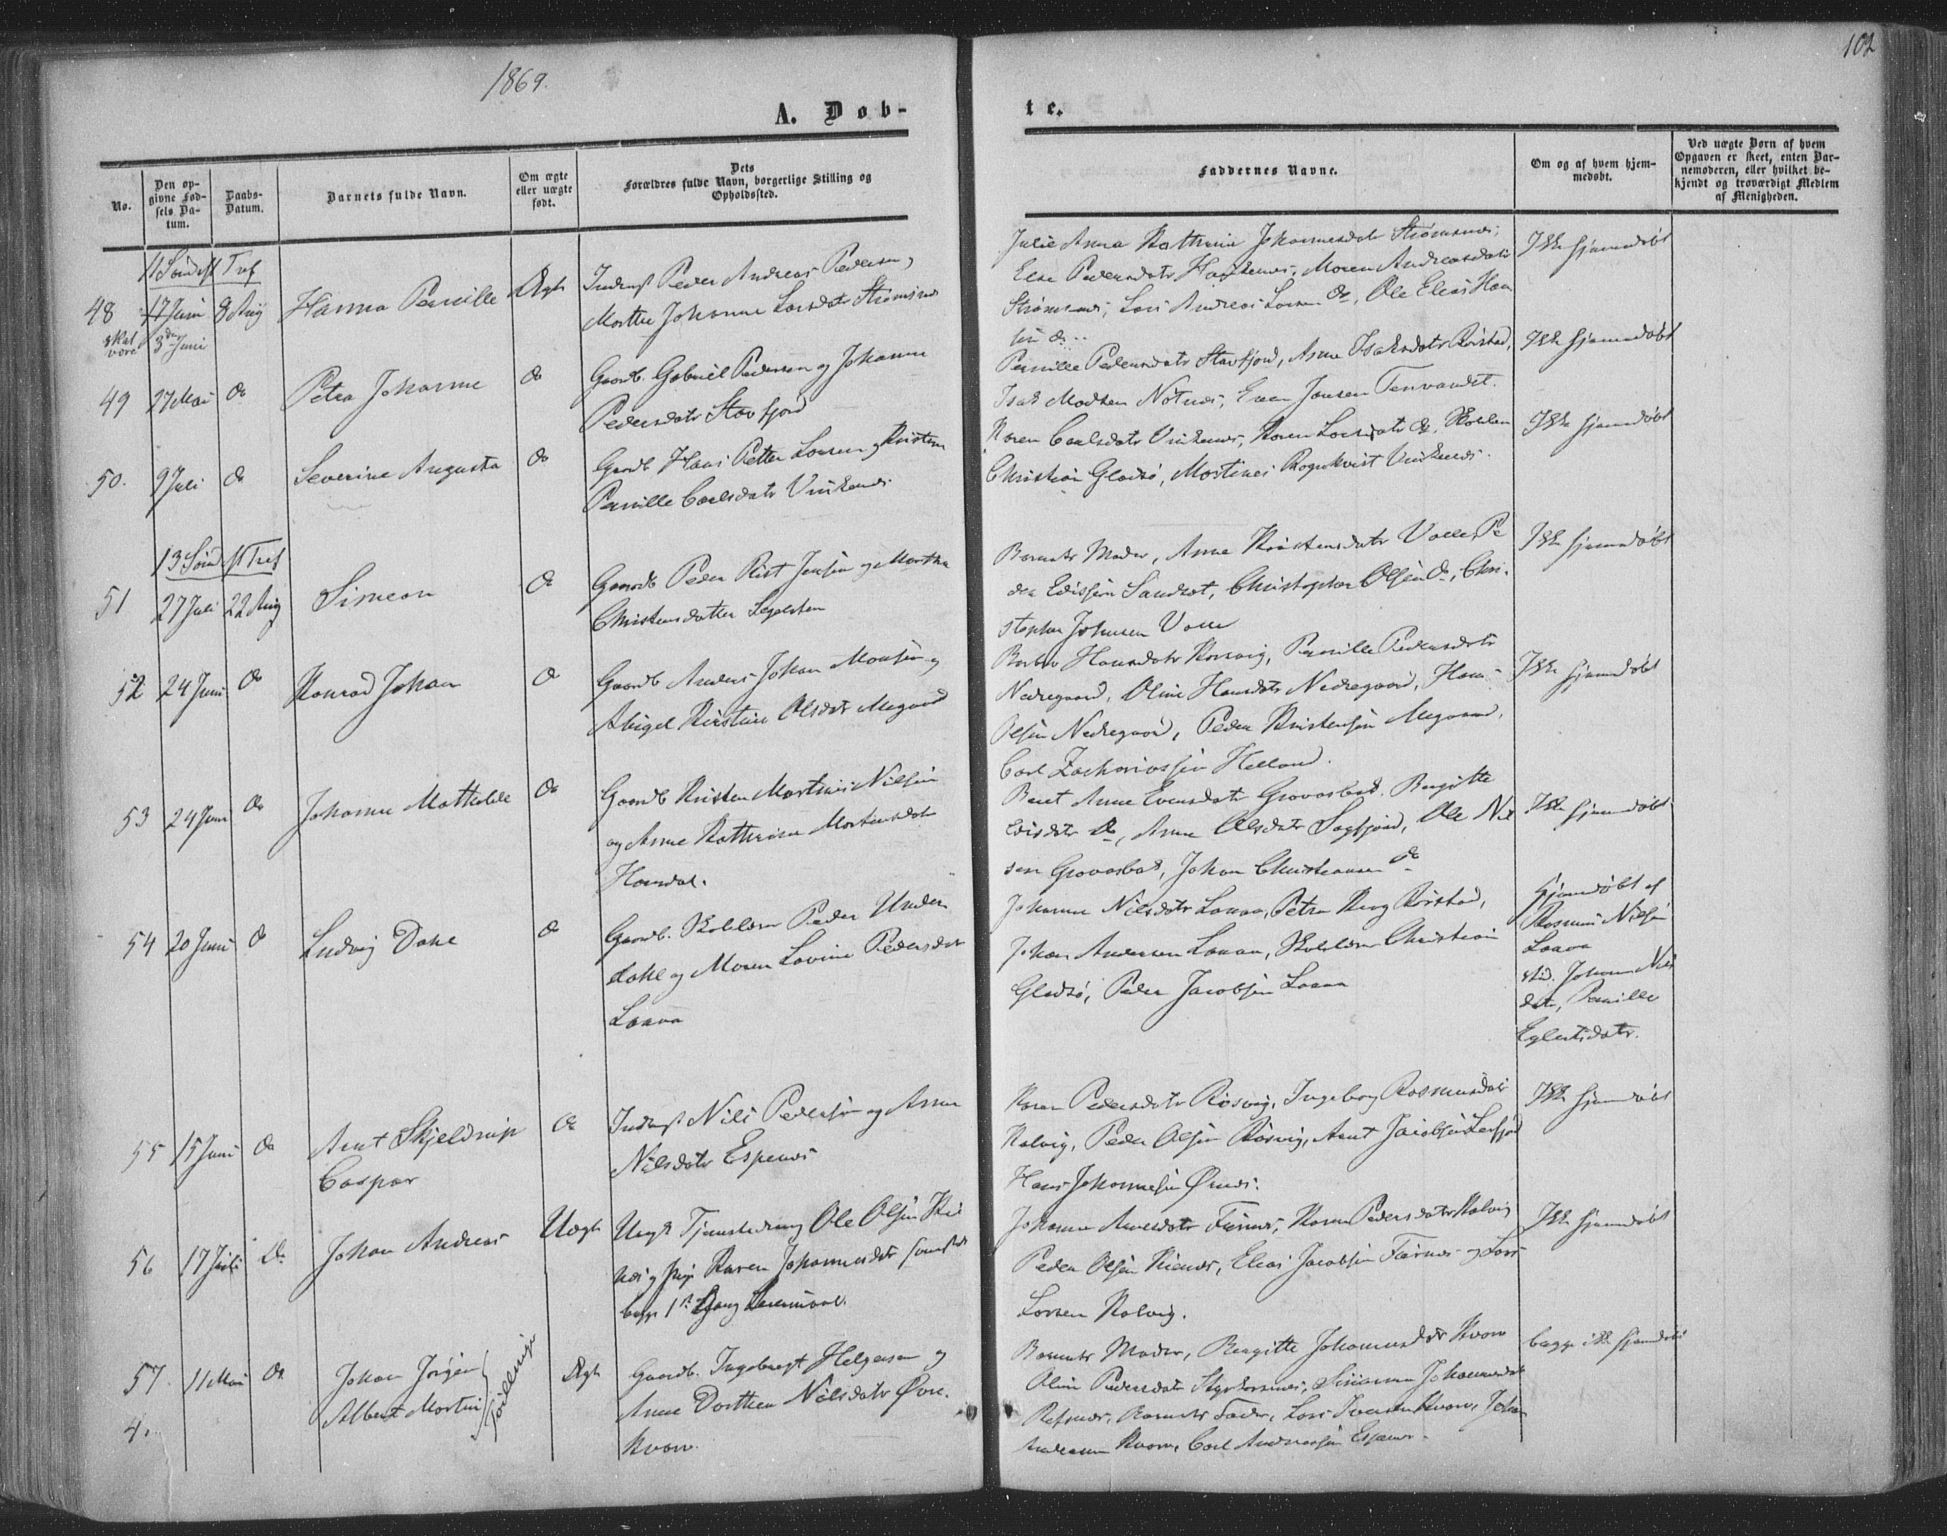 1869.
102
A. Døb-
te.
No.
Den op-
givne Fød-
sels Da-
tum.
Daabs-
Datum.
Barnets fulde Navn.
Om ægte
eller uægte
født.
Dets
Forældres fulde Navn, borgerlige Stilling og
Opholdssted.
Faddernes Navne.
Om og af hvem hjem-
medøbt.
Ved uægte Børn af hvem
Opgaven er skeet, enten Bar-
nemoderen, eller hvilket be-
kjendt og troværdigt Medlem
af Menigheden.
11 Sønd. Tref
48 17 Juni 8 Aug Hanna Pernille Ægte
skal være 3die Juni
Inderst Peder Andreas Pedersen,
Marthe Johanne Larsdatr Strømsnes
Julie Anna Kathrine Johannesdatr Strømsnes,
Else Pedersdatr, Maren Andreasdatr
Strømsnes, Lars Andreas Larsen do, Ole Elias Han
sen do
Ikke hjemmedøbt
49 27 Mai do Petra Johanne do
Gaardb. Gabriel Pedersen og Johanna
Pedersdatr Stavfjord
Pernille Pedersdatr Stavfjord, Anne Isaksdatr Rørstad,
Isak Madsen Notnes, Even Jonsen Tenvandet.
Ikke hjemmedøbt
50. 9 Juli do Severine Augusta do
Gaardb. Hans Petter Larsen og Kristense
Pernille Carlsdatr Vinkenes
Karen Carlsdatr Vinkenes, Karen Larsdatr do, Skolelær
Christian Gladsø, Martines Rognkvist Vinkenes.
Ikke hjemmedøbt
13 Sønd. Tref
51 27 Juli 22 Aug Simeon do
Gaardb Peder Kist Jensen og Martha
Christensdatter Segelsten
Barnets Moder, Anne Kristensdatr Valle, Pe
der Edissen Sandset, Christopher Olsen do, Chri-
stopher Johnsen Valle
Ikke hjemmedøbt
52 24 Juni do Konrad Johan do
Gaardb Anders Johan Monsen og
Abigel Kirstine Olsdatr Megaard
Hansdatr, Pernille Pedersdatr
Nedregaard, Oline Hansdatr Nedregaard, Hans
Olsen Nedregaard, Peder Kristensen Megaard,
Carl Zachariassen Helland.
Ikke hjemmedøbt
53 24 Juni do Johanna Mathilde do
Gaardb Kristen Martines Nilsen
og Anne Kathrine Mortensdatr
Hamdal.
Beret Anne Evensdatr Grovasbak, Bergitte
Edisdatr do, Anne Olsdatr Sagfjord, Ole Nil
sen Grovasbak, Johan Christiansen do
Ikke hjemmedøbt
54 20 Juni do Ludvig Dahl do
Gaardb. Skolelærer Peder Under
dahl og Maren Lovine Pedersdatr
Laava
Johanna Nilsdatr Laava, Petra Krog Rørstad,
Johan Andersen Laava, Skolelærer Christian
Gladsø, Peder Jacobsen Laava
Hjemmedøbt af
Rasmus Nilsen
Laava
Johanna Nils
datr, Pernille
Eglertsdatr.
55 15 Juni do Arnt Skjeldrup
Caspar
do
Inderst Nils Pedersen og Anne
Nilsdatr Espenes
Karen Pedersdatr Røsvig, Ingeborg Rasmusdatr
Kalvig, Peder Olsen Røsvig, Arnt Jacobsen Leifjord
Hans Johannesen Ørnes.
Ikke hjemmedøbt
56 17 Juli do Johan Andreas Uægte
Ungk Tjenestedreng Ole Olsen Kil
nes og Pige Karen Johannesdatr
begge 1ste Gang Leiermaal.
Johanna Arnesdatr Furnes, Karen Pedersdatr Kalvig
Peder Olsen, Elias Jacobsen Furnes og Lars
Larsen Kalvig.
Ikke hjemmedøbt
57. 11 Mai do Johan Jørgen
4. Albert Martin
Tvillinger
Ægte
Gaardb. Ingebrigt Helgesen og
Anne Dorthea Nilsdatr Øvre
Kvarv.
Barnets Moder, Bergitte Johannesdatr Kvarv
Oline Pedersdatr Styrkesnes, Susanna Johannesdatr
Refsnes, Barnets Fader, Lars Iversen Kvarv, Johan
Andersen Kvarv, Carl Andreassen Espenes.
begge ikke hjemmedøbt